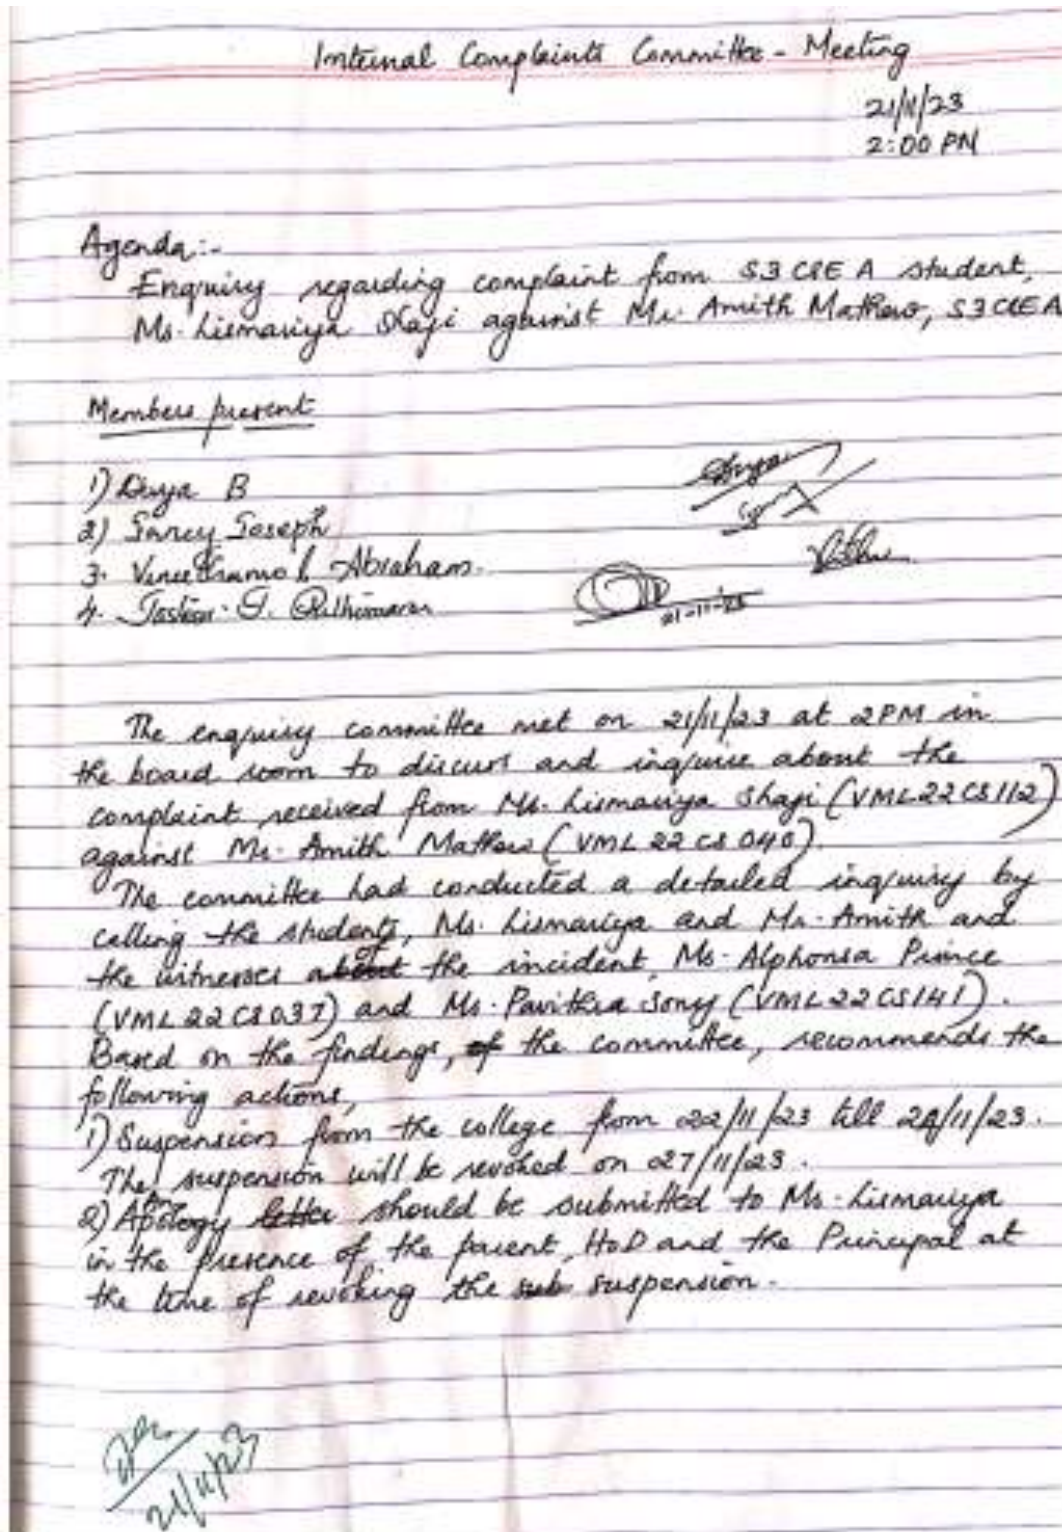 Internal Complaints Committee - Meeting
21/11/23
2:00 PM
Agenda:-
Enquiry regarding complaint from S3 CSE A student,
Ms. Lismariya Shaji against Mr. Amith Mathew, S3 CSE A
Members present
1) Divya B
2) Joseph
3. Vineethamol Abraham.
4.
21-11-23
The enquiry committee met on 21/11/23 at 2PM in
the board room to discuss and inquire about the
complaint received from Ms. Lismariya Shaji (VML22CS112)
against Mr. Amith Mathew (VML22CS040).
The committee had conducted a detailed inquiry by
calling the students, Ms. Lismariya and Mr. Amith and
the witnesses of the incident, Ms. Alphonsa Prince
(VML22CS037) and Ms. Pavithra Sony (VML22CS141).
Based on the findings, the committee, recommends the
following actions,
1) Suspension from the college from 22/11/23 till 24/11/23.
The suspension will be revoked on 27/11/23.
2) Apology should be submitted to Ms. Lismariya
in the presence of the parent, HoD and the Principal at
the time of revoking the suspension.
21/11/23